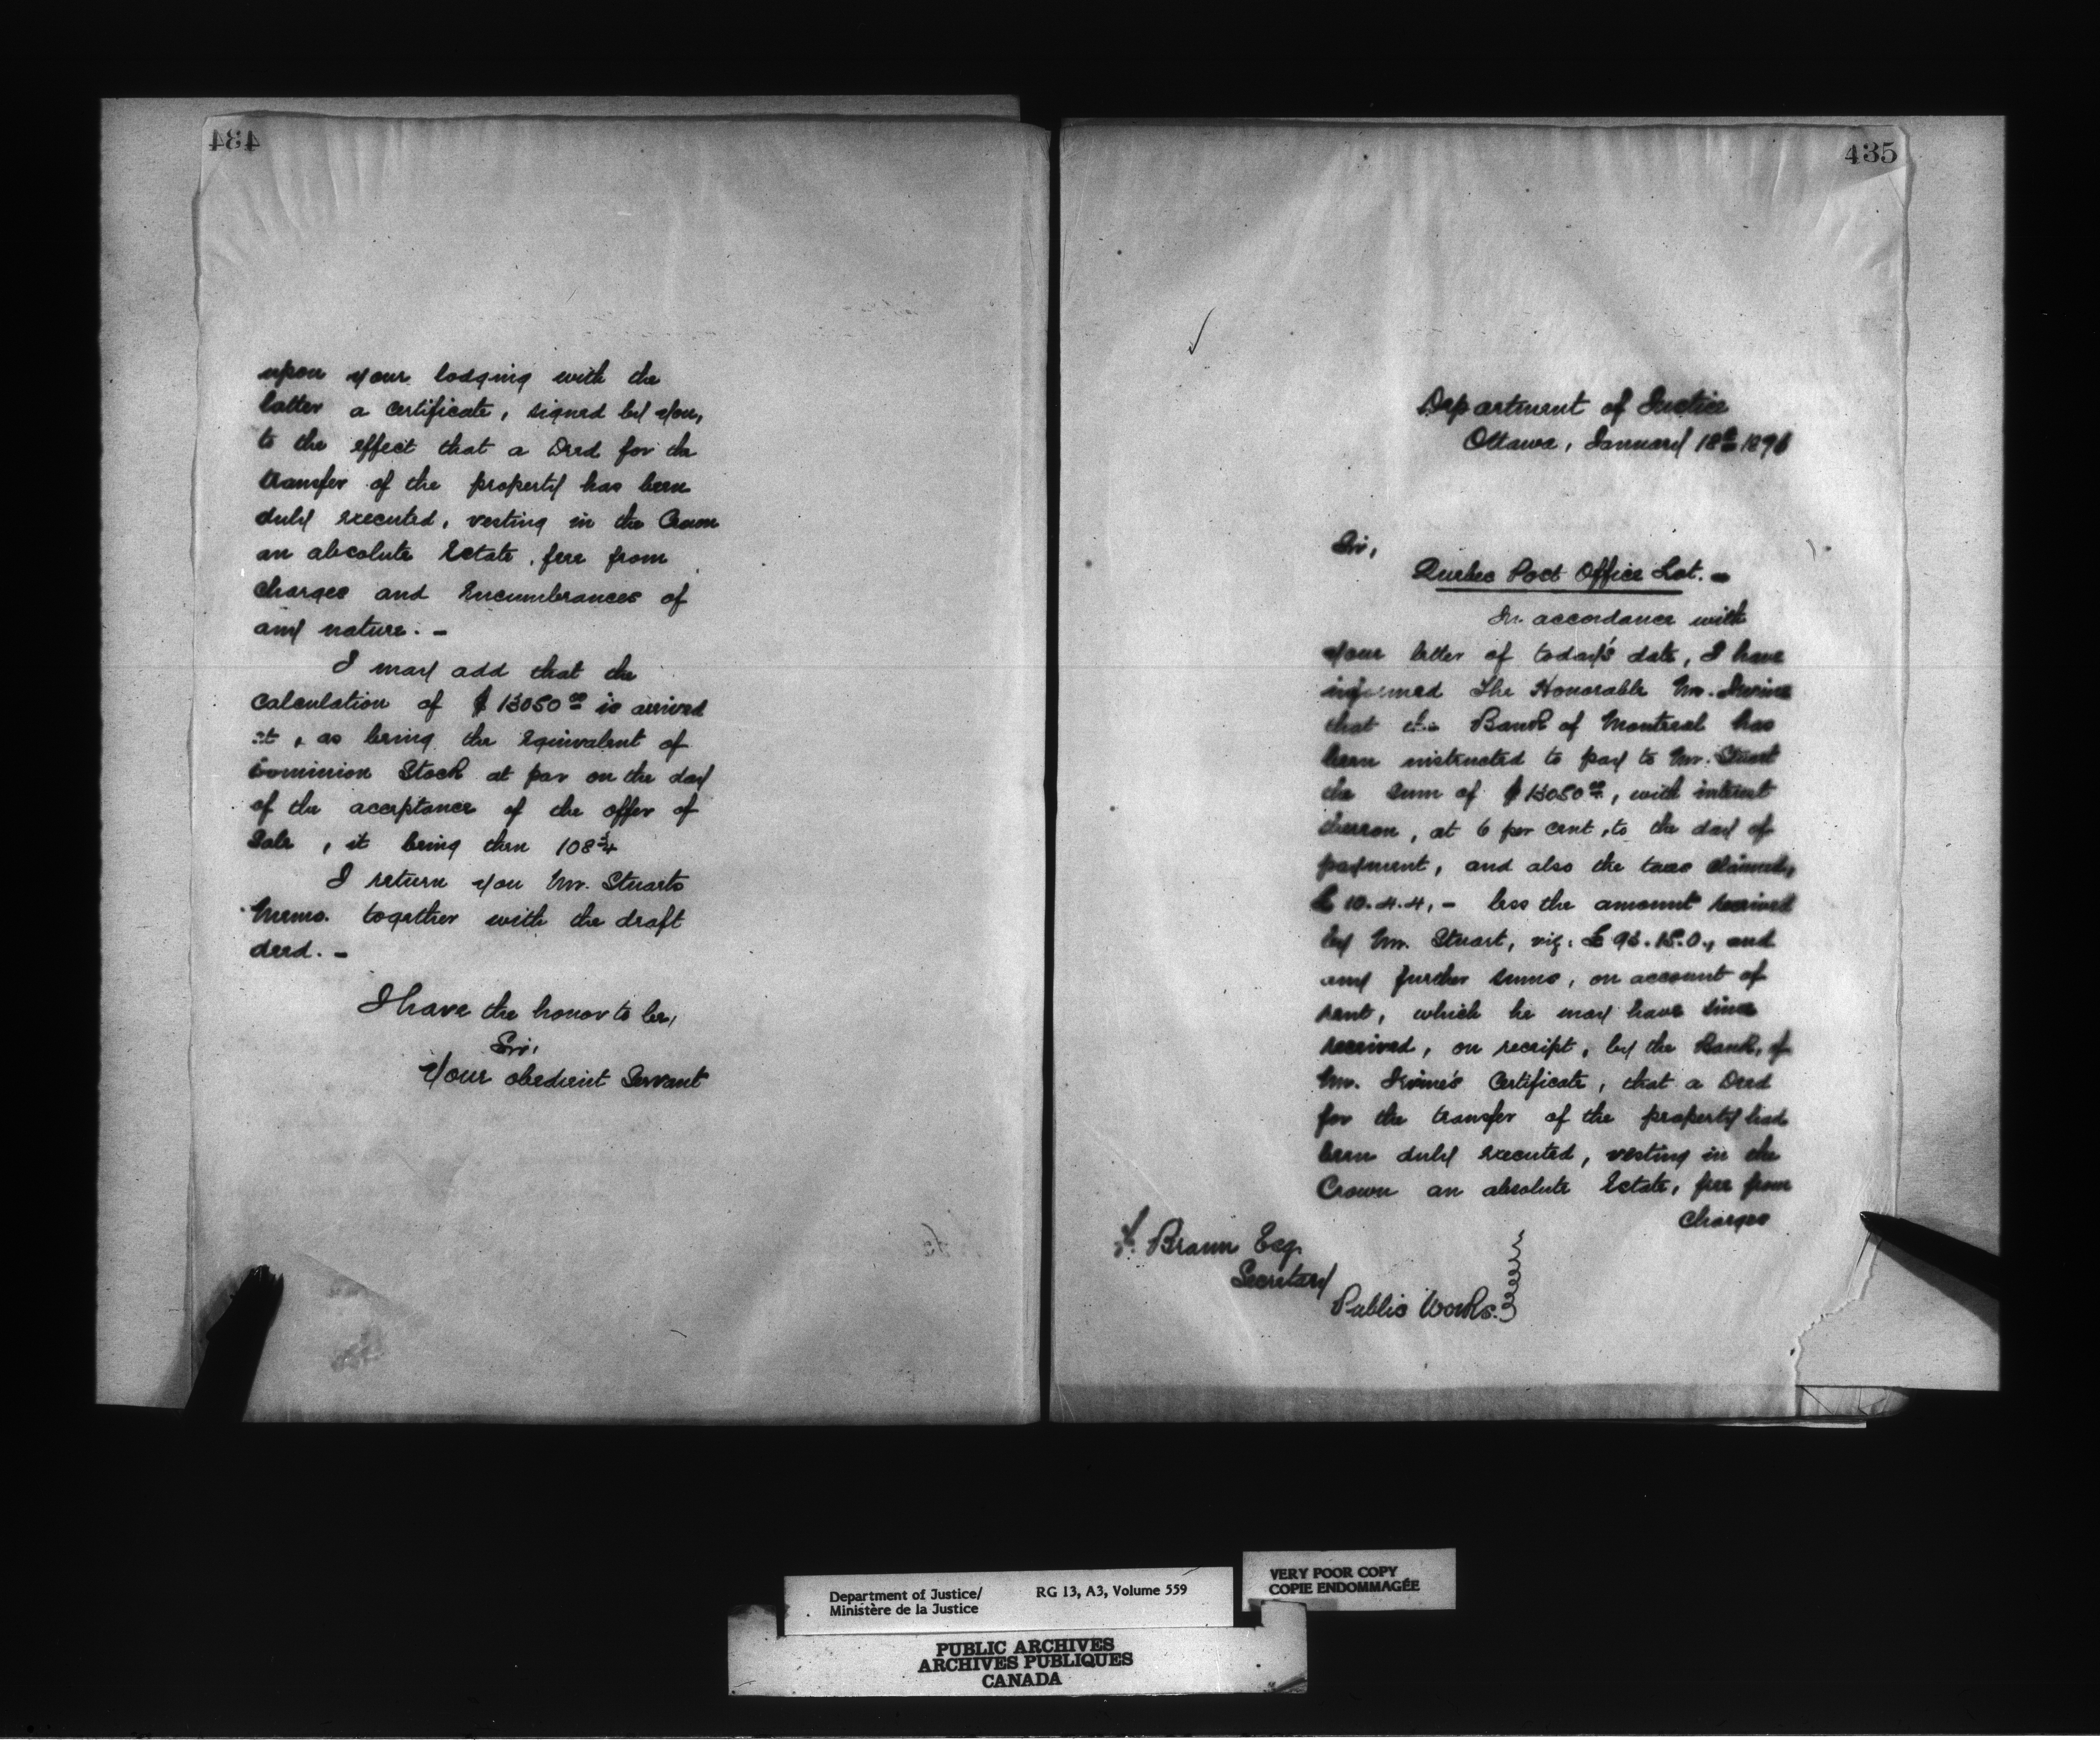 434
upon your lodging with the
latter a Certificate, signed by you,
to the effect that a Deed for the
transfer of the property has been
duly executed, vesting in the Crown
an absolute Estate, free from
charges and Encumbrances of
any nature. -
I may add that the
Calculation of $13050 00 is arrived
at, as being the Equivalent of
Dominion Stock at par on the day
of the acceptance of the offer of
Sale, it being then 108 3/4
I return you Mr. Stuarts
Memo. together with the draft
deed. -
I have the honor to be,
Sir,
Your obedient Servant
435
Department of Justice
Ottawa, January 18th 187
Sir,
Quebec Post Office Lot. -
In accordance with
your letter of today's date, I have
informed The Honorable Mr. Irvine
that the Bank of Montreal has
been instructed to pay to Mr. Stuart
the sum of $13050 00, with interest
thereon, at 6 per cent, to the day of
payment, and also the taxes claimed,
£ 10.4.4, - less the amount received
by Mr. Stuart, viz: £ 15.0., and
any further sums, on account of
rent, which he may have since
received, on receipt, by the Bank, of
Mr. Irvine's Certificate, that a Deed
for the transfer of the property had
been duly executed, vesting in the
Crown an absolute Estate, free from
Charges
F. Braun Esq.
Secretary
Public Works.
Department of Justice/
Ministère de la Justice
RG 13, A3, Volume 559
VERY POOR COPY
COPIE ENDOMMAGÉE
PUBLIC ARCHIVES
ARCHIVES PUBLIQUES
CANADA